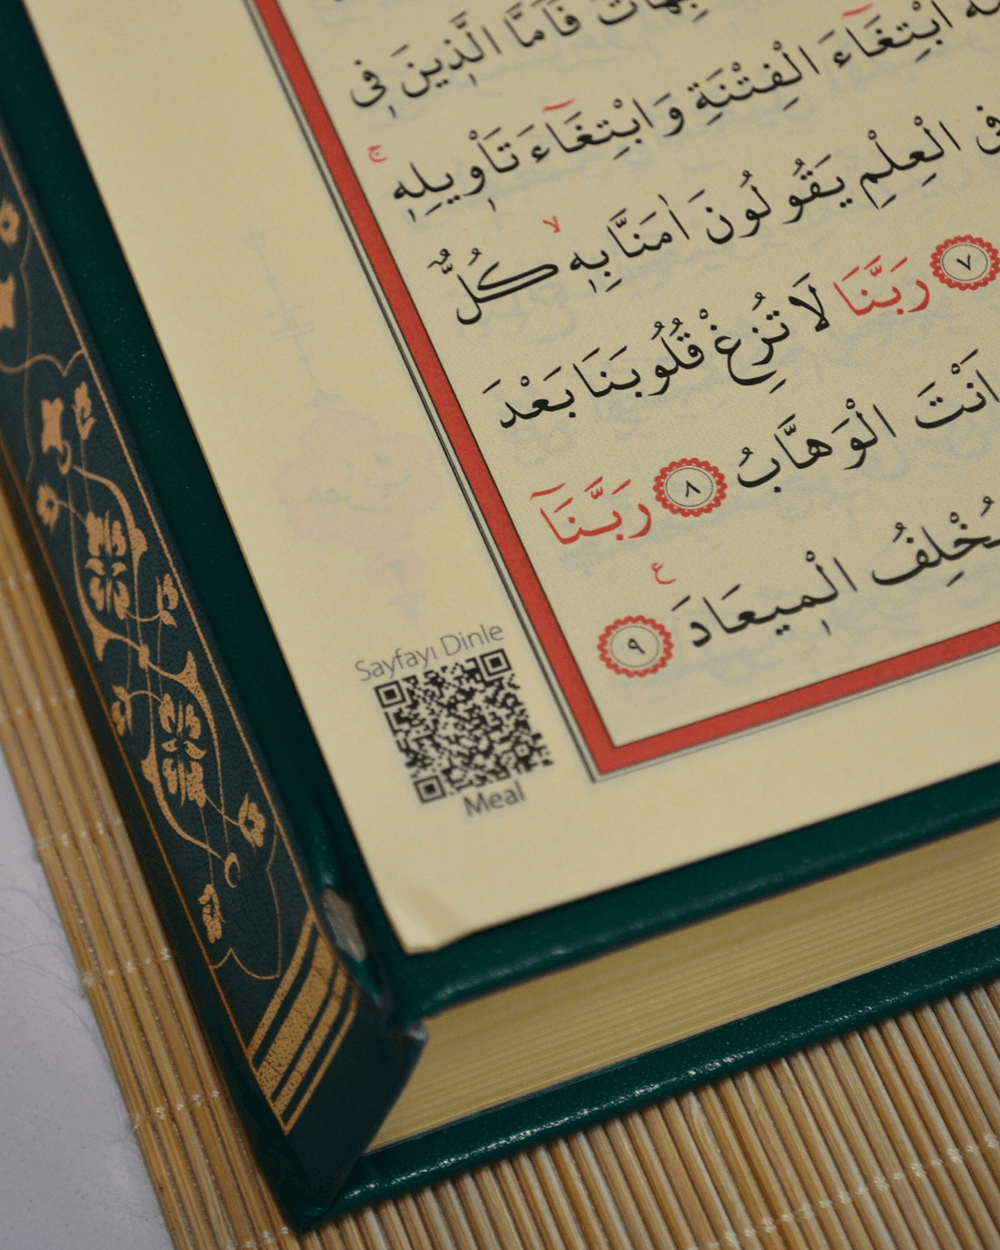 فَاَمَّا الَّذٖينَ فٖى
ابْتِغَٓاءَ الْفِتْنَةِ وَابْتِغَٓاءَ تَاْوٖيلِهٖۚ
الْعِلْمِ يَقُولُونَ اٰمَنَّا بِهٖۙ كُلٌّ
٧ رَبَّنَا لَا تُزِغْ قُلُوبَنَا بَعْدَ
اَنْتَ الْوَهَّابُ ٨ رَبَّنَٓا
ـُخْلِفُ الْمٖيعَادَ ع ٩
Sayfayı Dinle
Meal